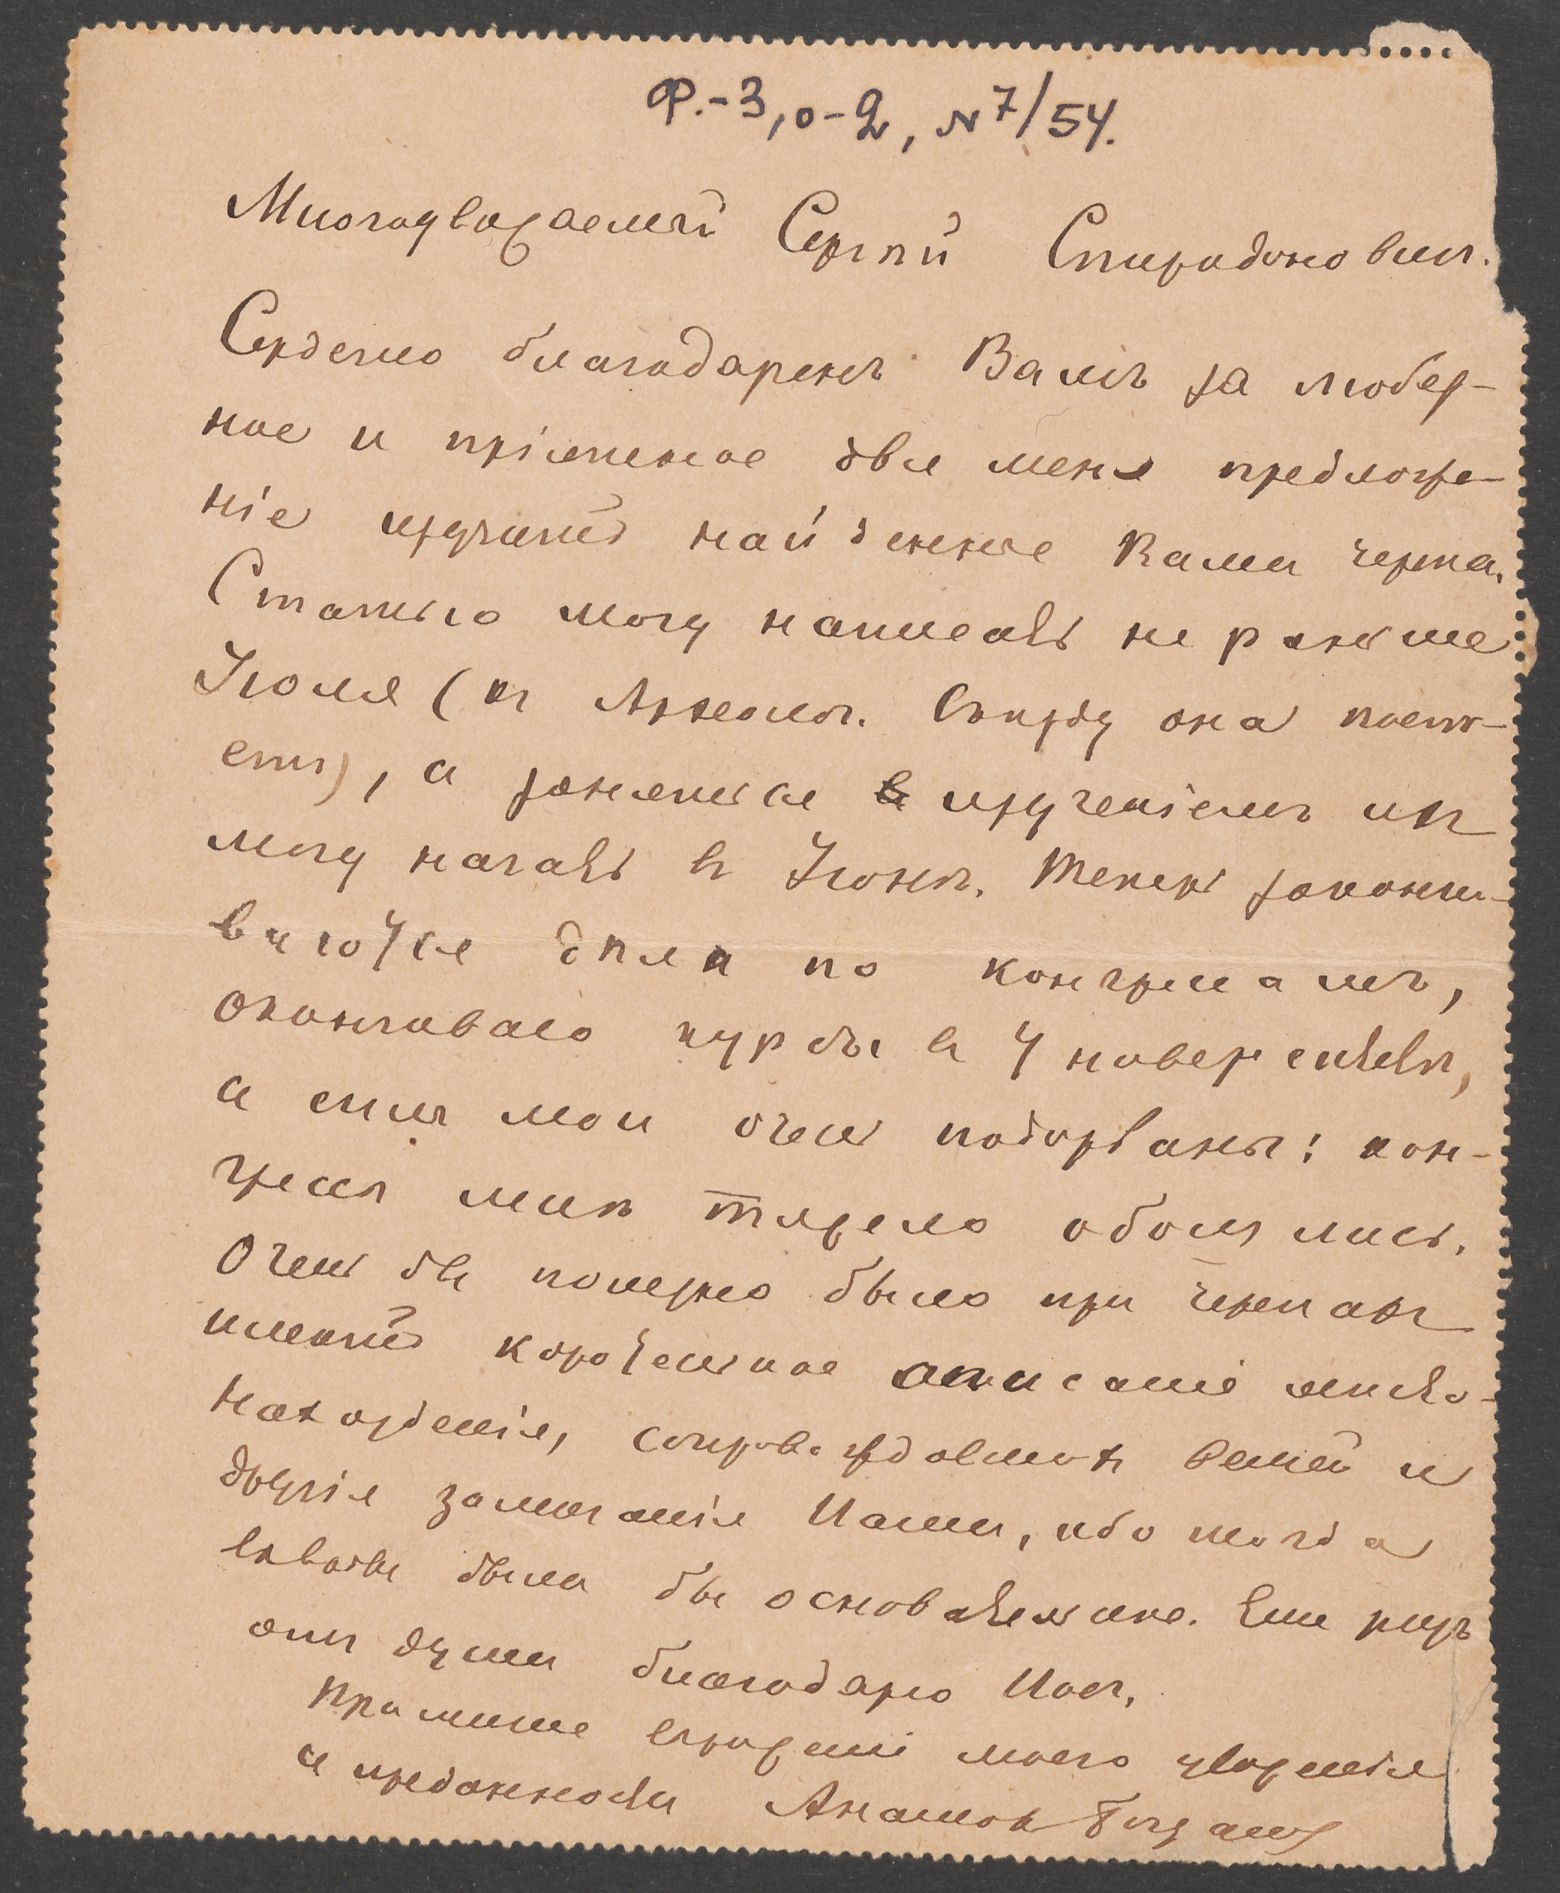 Ф.-3, о-2, № 7/54.
Многоуважаемый Сергѣй Спиридоновичъ.
Сердечно благодаренъ Вамъ за любез-
ное и пріятное для меня предложе-
ніе изучить найденные Вами черепа.
Статью могу написать не раньше
Іюля (къ Археолог. Съѣзду она поспѣ-
етъ), а заняться изученіемъ ихъ
могу начать въ Іюнѣ. Теперь заканчи-
ваются дѣла по конгрессамъ,
оканчиваю курсы въ Университетѣ,
а силы мои очень подорваны: кон-
грессы мнѣ тяжело обошлись.
Очень бы полезно было при черепахъ
имѣть коротенькое описаніе мѣсто-
нахожденія, сопровождавшихъ вещей и
другія замѣчанія Ваши, ибо тогда
была бы основательнѣе. Еще разъ
отъ души благодарю Васъ.
Примите выраженіе моего уваженія
и преданности Анатолій Богдановъ